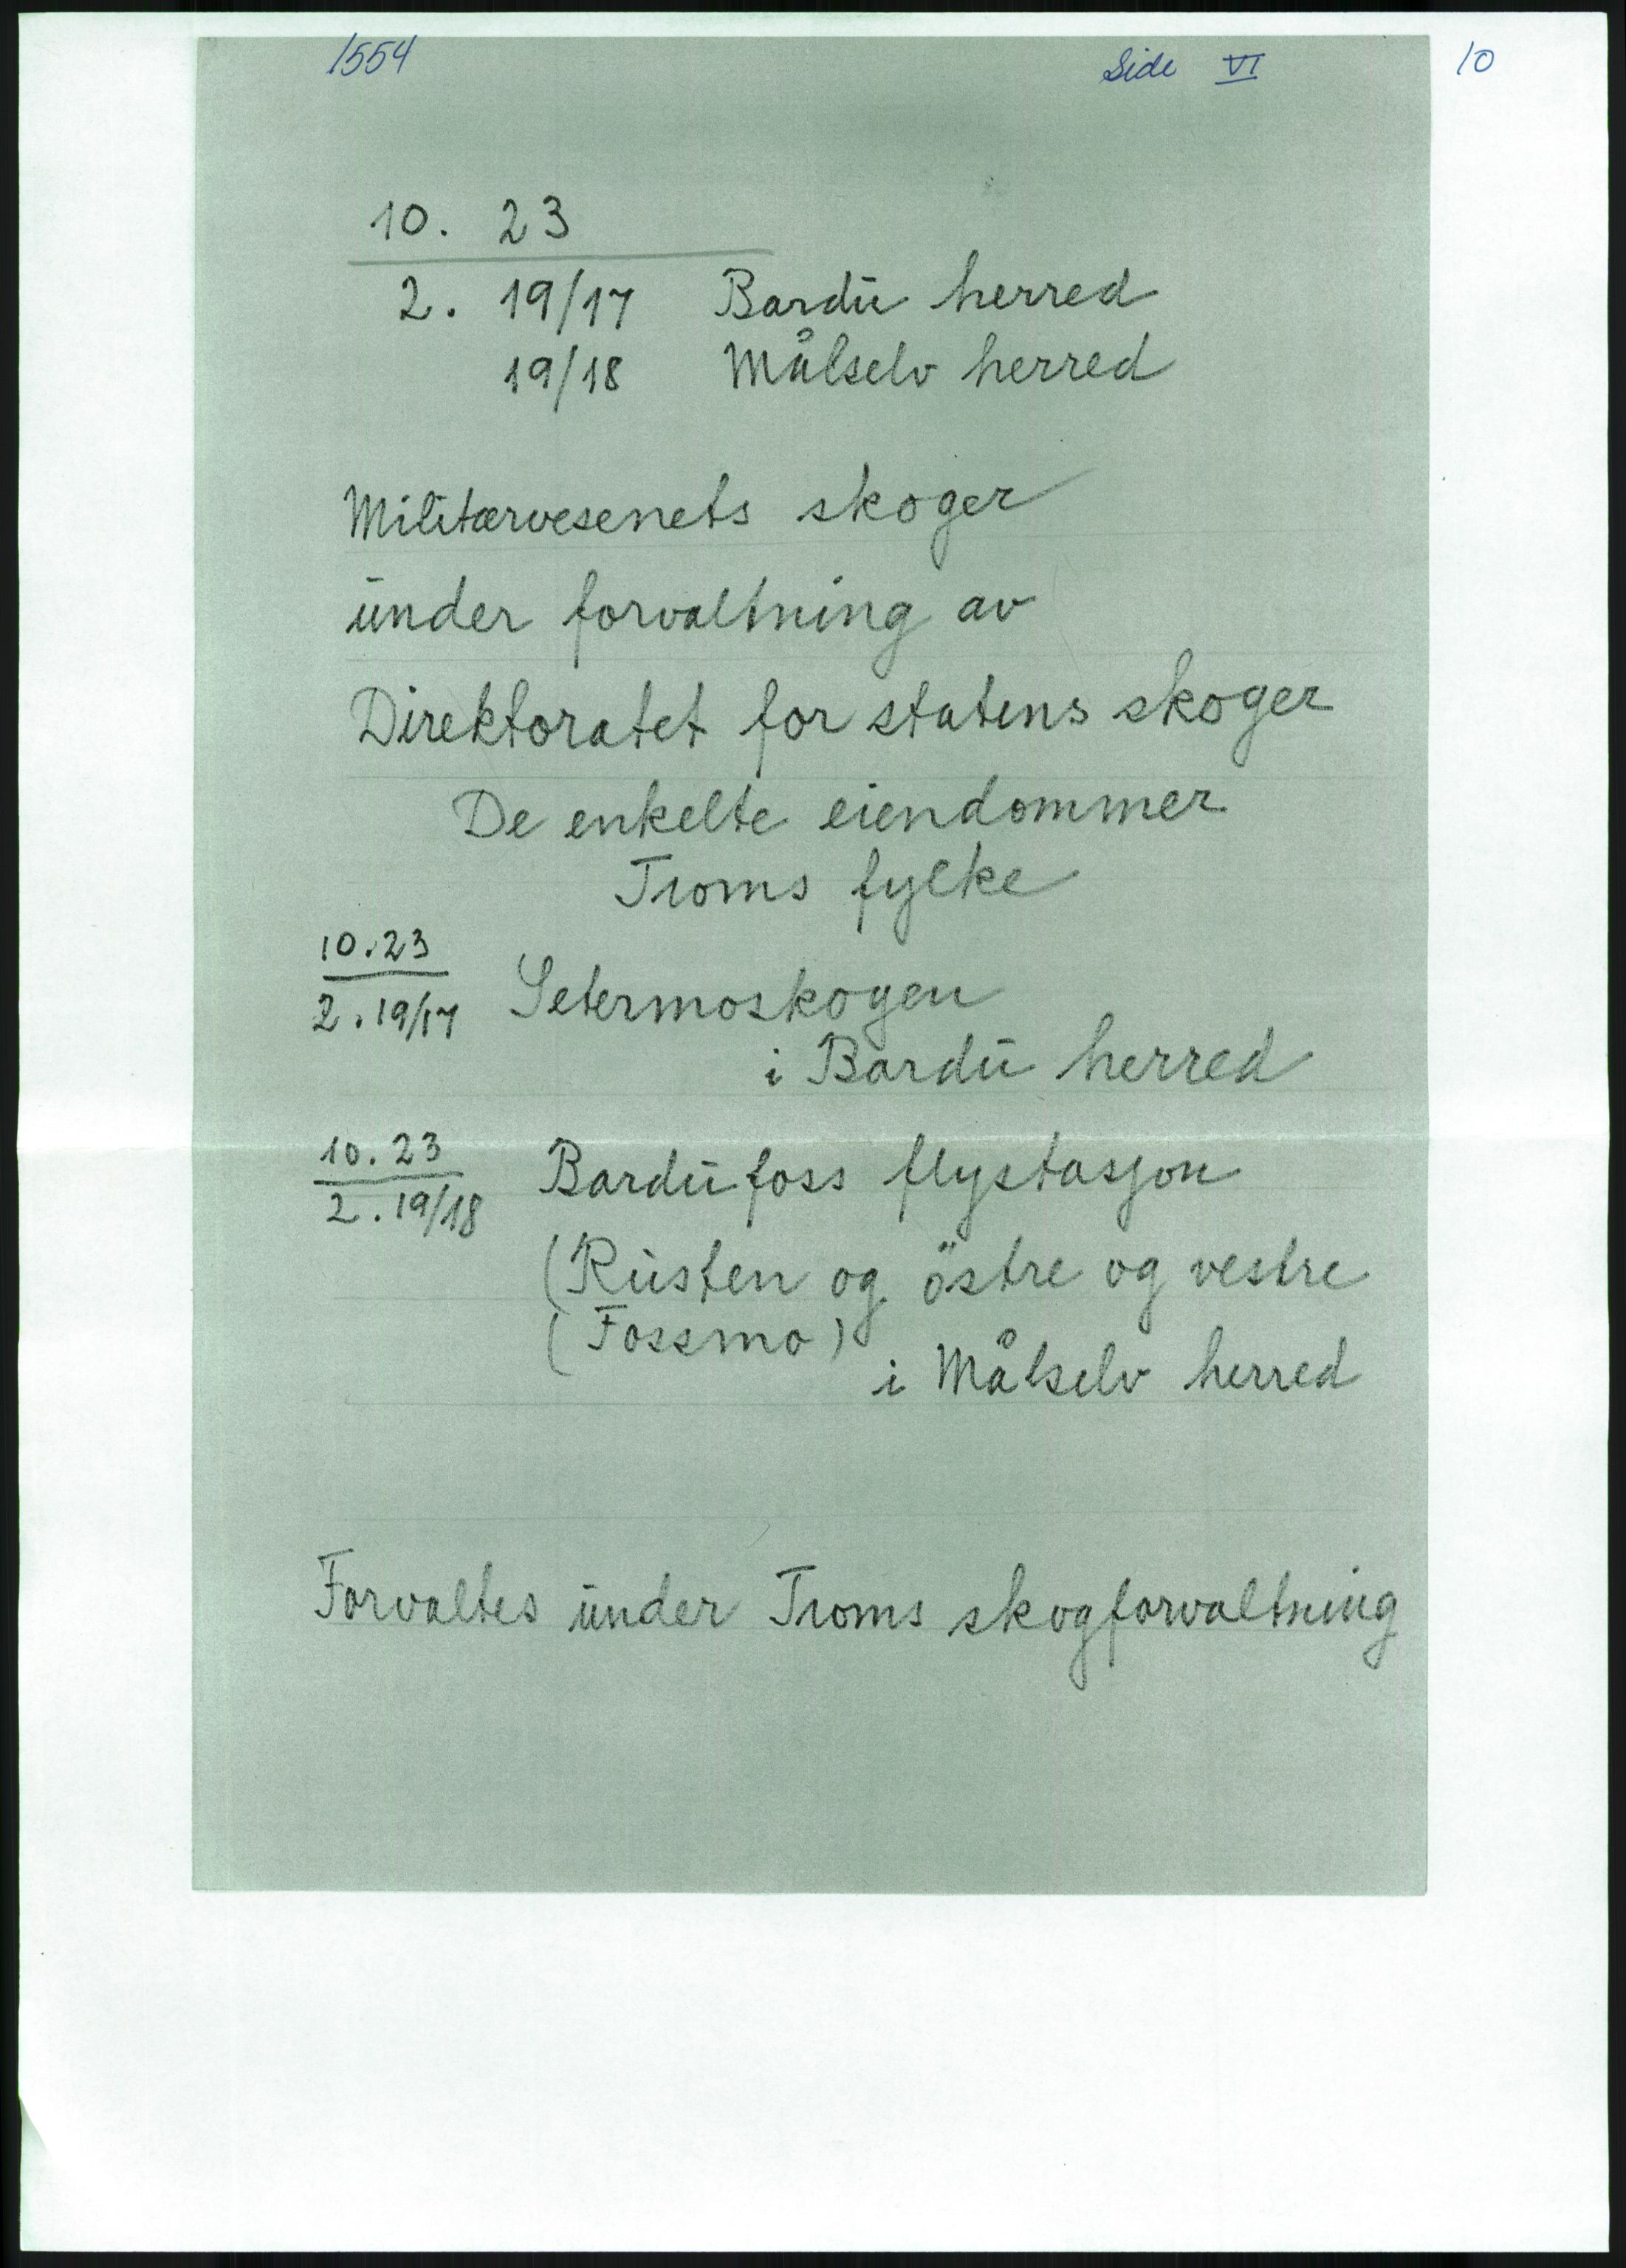 1554 Side VI 10
10. 23
2. 19/17 Bardu herred
19/18 Målselv herred
Militærvesenets skoger
under forvaltning av
Direktoratet for statens skoger
De enkelte eiendommer
Troms fylke
10.23
2.19/17 Setermoskogen
i Bardu herred
10.23
2.19/18 Bardufoss flystasjon
(Rusten og östre og vestre
(Fossmo)
i Målselv herred
Forvaltes under Troms skogforvaltning